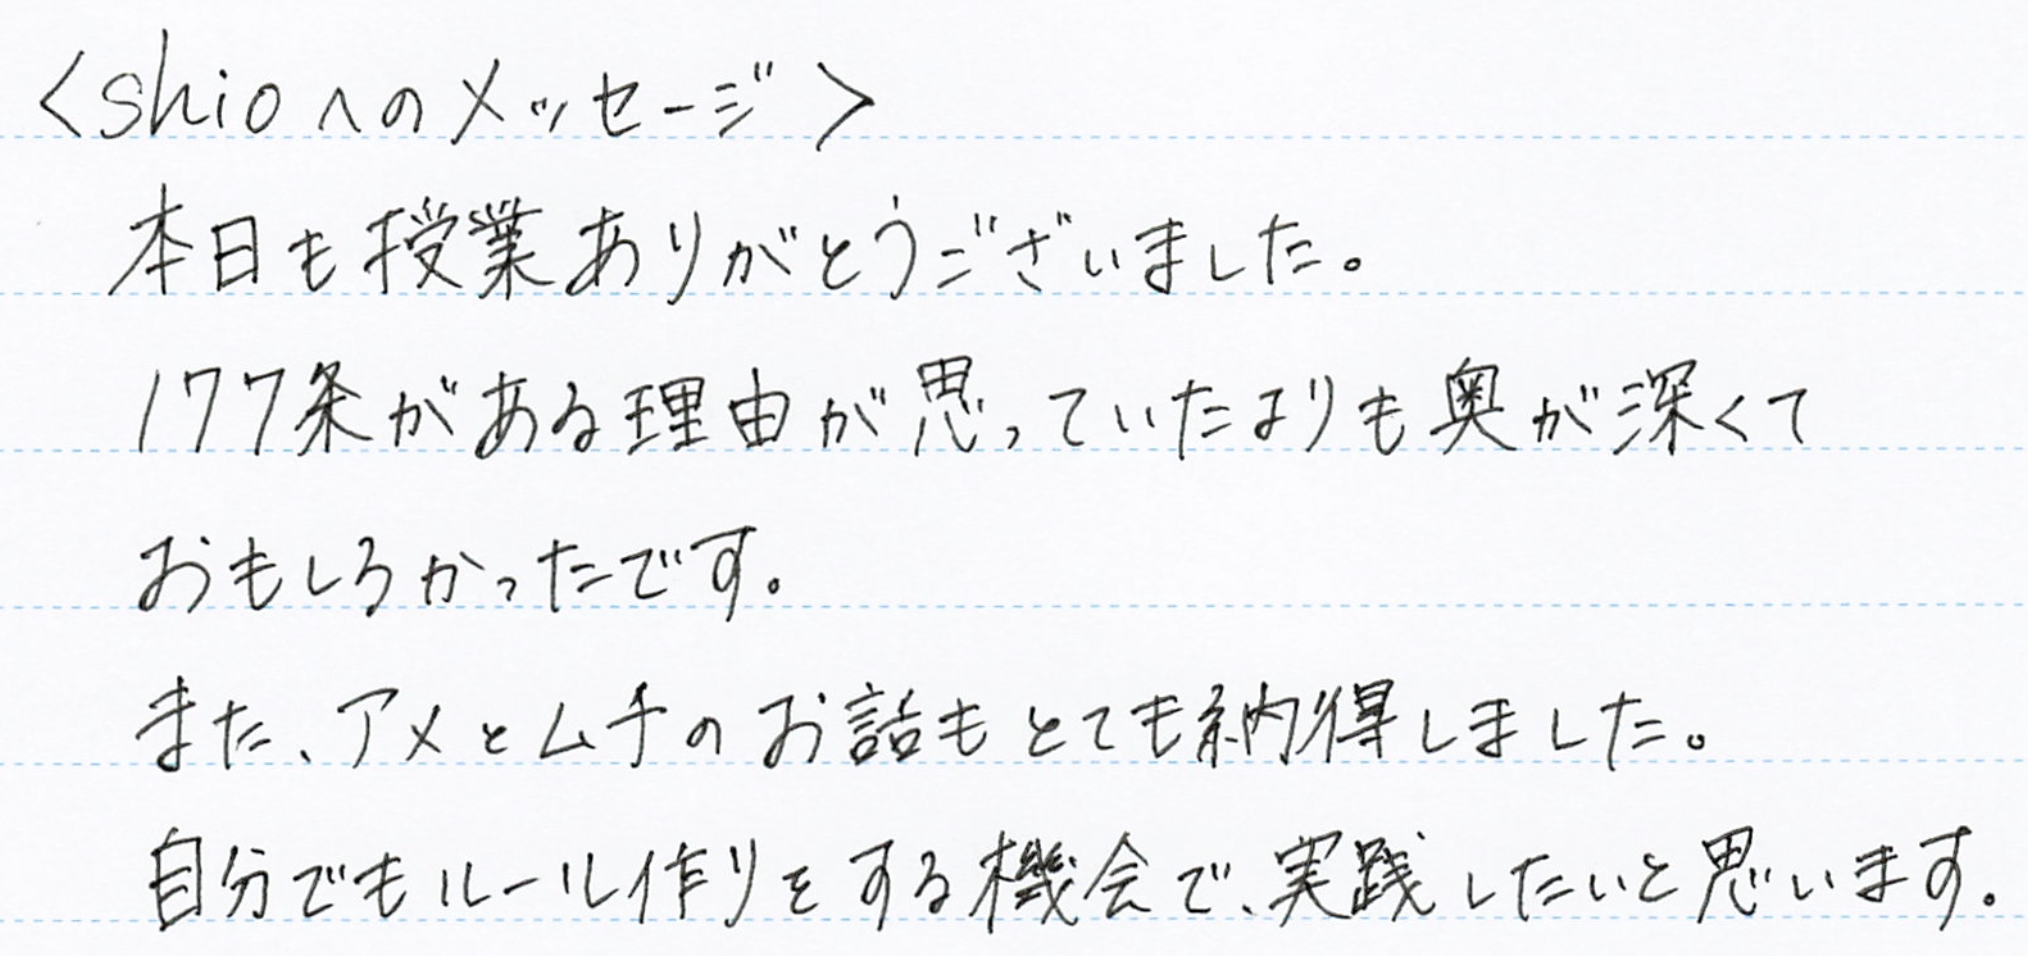 <shioへのメッセージ>
本日も授業ありがとうございました。
177条がある理由が思っていたよりも奥が深くて
おもしろかったです。
また、アメとムチのお話もとても納得しました。
自分でもルール作りをする機会で、実践したいと思います。